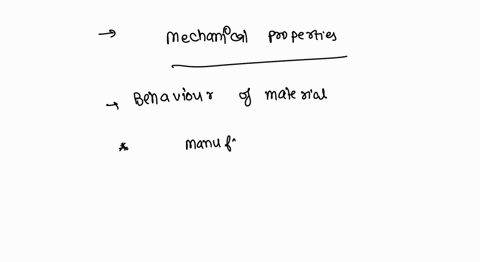 → Mechanical properties
→ Behaviour of material
* manuf